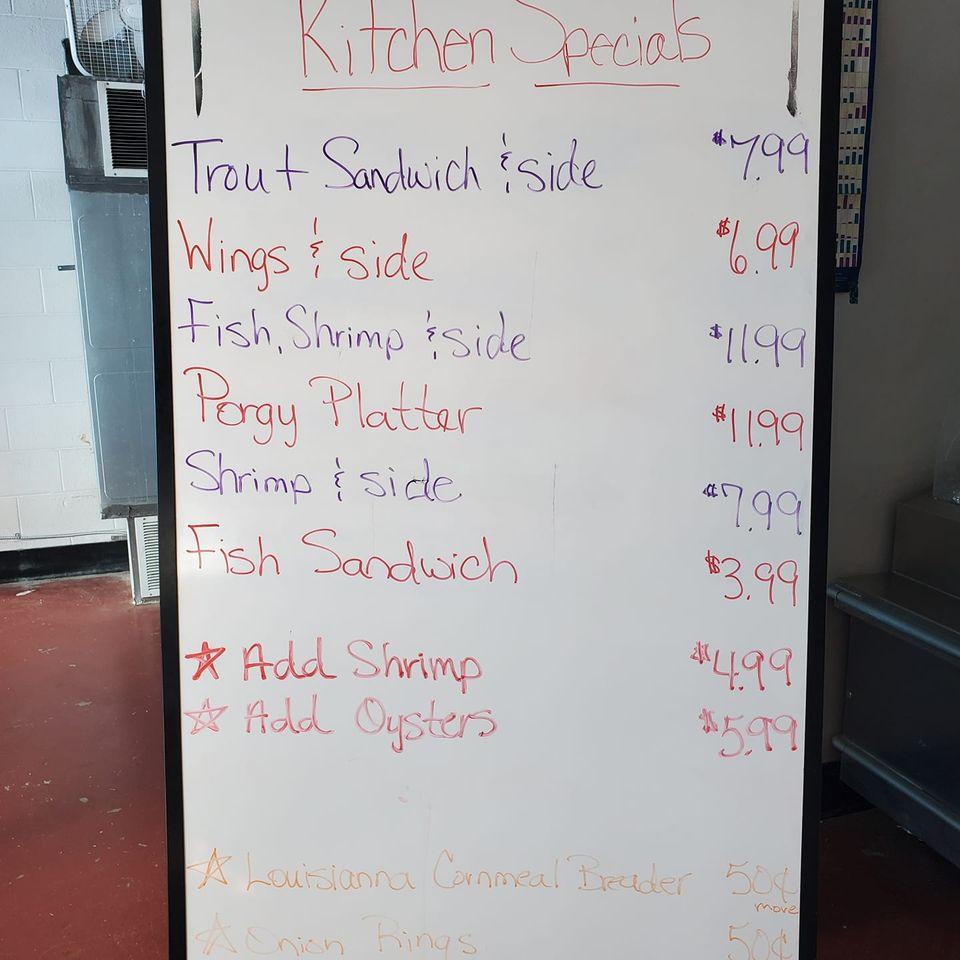 Kitchen Specials
Trout Sandwich & side $7.99
Wings & side $6.99
Fish, Shrimp & side $11.99
Porgy Platter $11.99
Shrimp & side $7.99
Fish Sandwich $3.99
☆ Add Shrimp $4.99
☆ Add Oysters $5.99
☆ Louisianna Cornmeal Breader 50¢
more
☆ Onion Rings 50¢